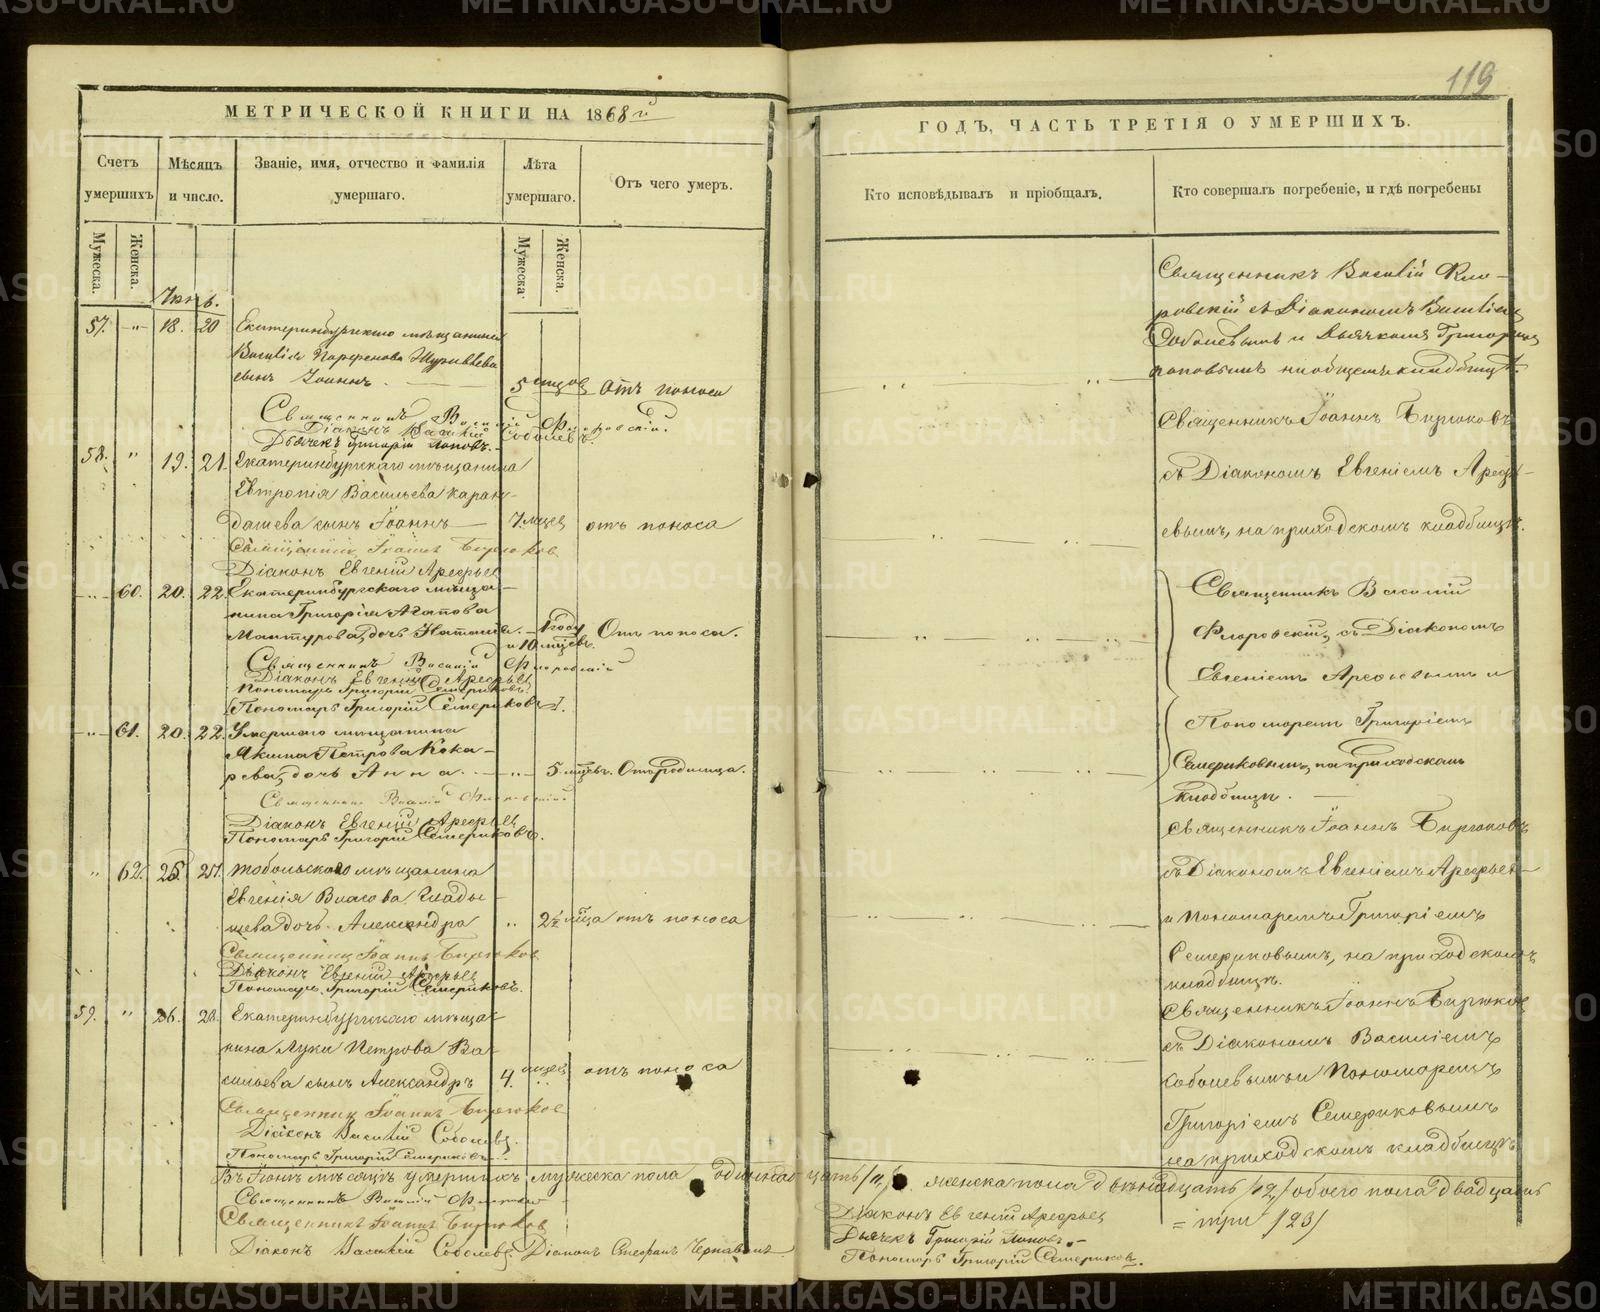 119
МЕТРИЧЕСКОЙ КНИГИ НА 1868й
ГОДЪ, ЧАСТЬ ТРЕТІЯ О УМЕРШИХЪ.
Счетъ умершихъ
Мѣсяцъ и число.
Званіе, имя, отчество и фамилія умершаго.
Лѣта умершаго.
Отъ чего умеръ.
Кто исповѣдывалъ и пріобщалъ.
Кто совершалъ погребеніе, и гдѣ погребены
Мужеска.
Женска.
Мужеска
Женска.
Іюнь.
57. -"- 18. 20 Екатеринбургскаго мѣщанина
Василія Парфенова Журавлева
сынъ Іоаннъ. 5 мцов Отъ поноса
Священникъ Василій Флоровскій.
Діаконъ Василій Соболевъ.
Дьячекъ Григорій Поповъ.
Священникъ Василій Фло-
ровскій съ Діакономъ Василіемъ
Соболевымъ и Дьячкомъ Григоріемъ
Поповымъ на общемъ кладбищѣ.
58. " 19. 21. Екатеринбургскаго мѣщанина
Евтропія Васильева Каран-
дашева сынъ Іоаннъ 7. мцев отъ поноса
Священник Іоаннъ Бирюков
Діаконъ Евгеній Арефьев
Священникъ Іоаннъ Бирюковъ
съ Діакономъ Евгеніемъ Арефь-
евымъ, на приходскомъ кладбищѣ.
-"- 60. 20. 22. Екатеринбургскаго мѣща-
нина Григорія Агапова
Мантурова, дочь Наталія. 1 году
и 10 мцевъ. Отъ поноса.
Священникъ Василій Флоровскій
Діаконъ Евгеній Арефьев
Пономарь Григорій Семериковъ.
Пономарь Григорій Семериковъ.
Священникъ Василій
Флоровскій, съ Діакономъ
Евгеніемъ Арефьевымъ и
Пономаремъ Григоріемъ
Семериковымъ, на приходскомъ
кладбищѣ.
-"- 61. 20. 22. Умершаго мѣщанина
Якима Петрова Кока-
рева, дочь Анна. -"- 5 мцевъ. Отъ родимца.
Священник Василій Флоровскій.
Діаконъ Евгеній Арефьев
Пономарь Григорій Семериковъ.
" 62. 25. 27. Тобольскаго мѣщанина
Евгенія Власова Глады-
шева дочь Александра " 2½ мца отъ поноса
Священник Іоаннъ Бирюков
Діаконъ Евгеній Арефьев
Пономарь Григорій Семериковъ.
Священникъ Іоаннъ Бирюковъ
съ Діакономъ Евгеніемъ Арефьев-
и Пономаремъ Григоріемъ
Семериковымъ, на приходскомъ
кладбищѣ.
59. " 26. 28. Екатеринбургскаго мѣща-
нина Луки Петрова Ва-
сильева сынъ Александръ 4. мцев " отъ поноса
Священник Іоаннъ Бирюков
Діаконъ Василій Соболев.
Пономарь Григорій Семериковъ.
Священникъ Іоаннъ Бирюков
съ Діакономъ Василіемъ
Соболевымъ и Пономаремъ
Григоріемъ Семериковымъ
на приходскомъ кладбищѣ
Въ Іюнѣ мѣсяцѣ умершихъ мужеска пола одиннадцать /11/ женска пола двѣнадцать /12/ обоего пола двадцать
= три /23/
Священникъ Василій Флоровск
Священникъ Іоаннъ Бирюков
Діаконъ Василій Соболев. Діаконъ Стефанъ Чернавинъ
Діаконъ Евгеній Арефьев
Дьячек Григорій Поповъ.
Пономарь Григорій Семериковъ.
METRIKI.GASO-URAL.RU